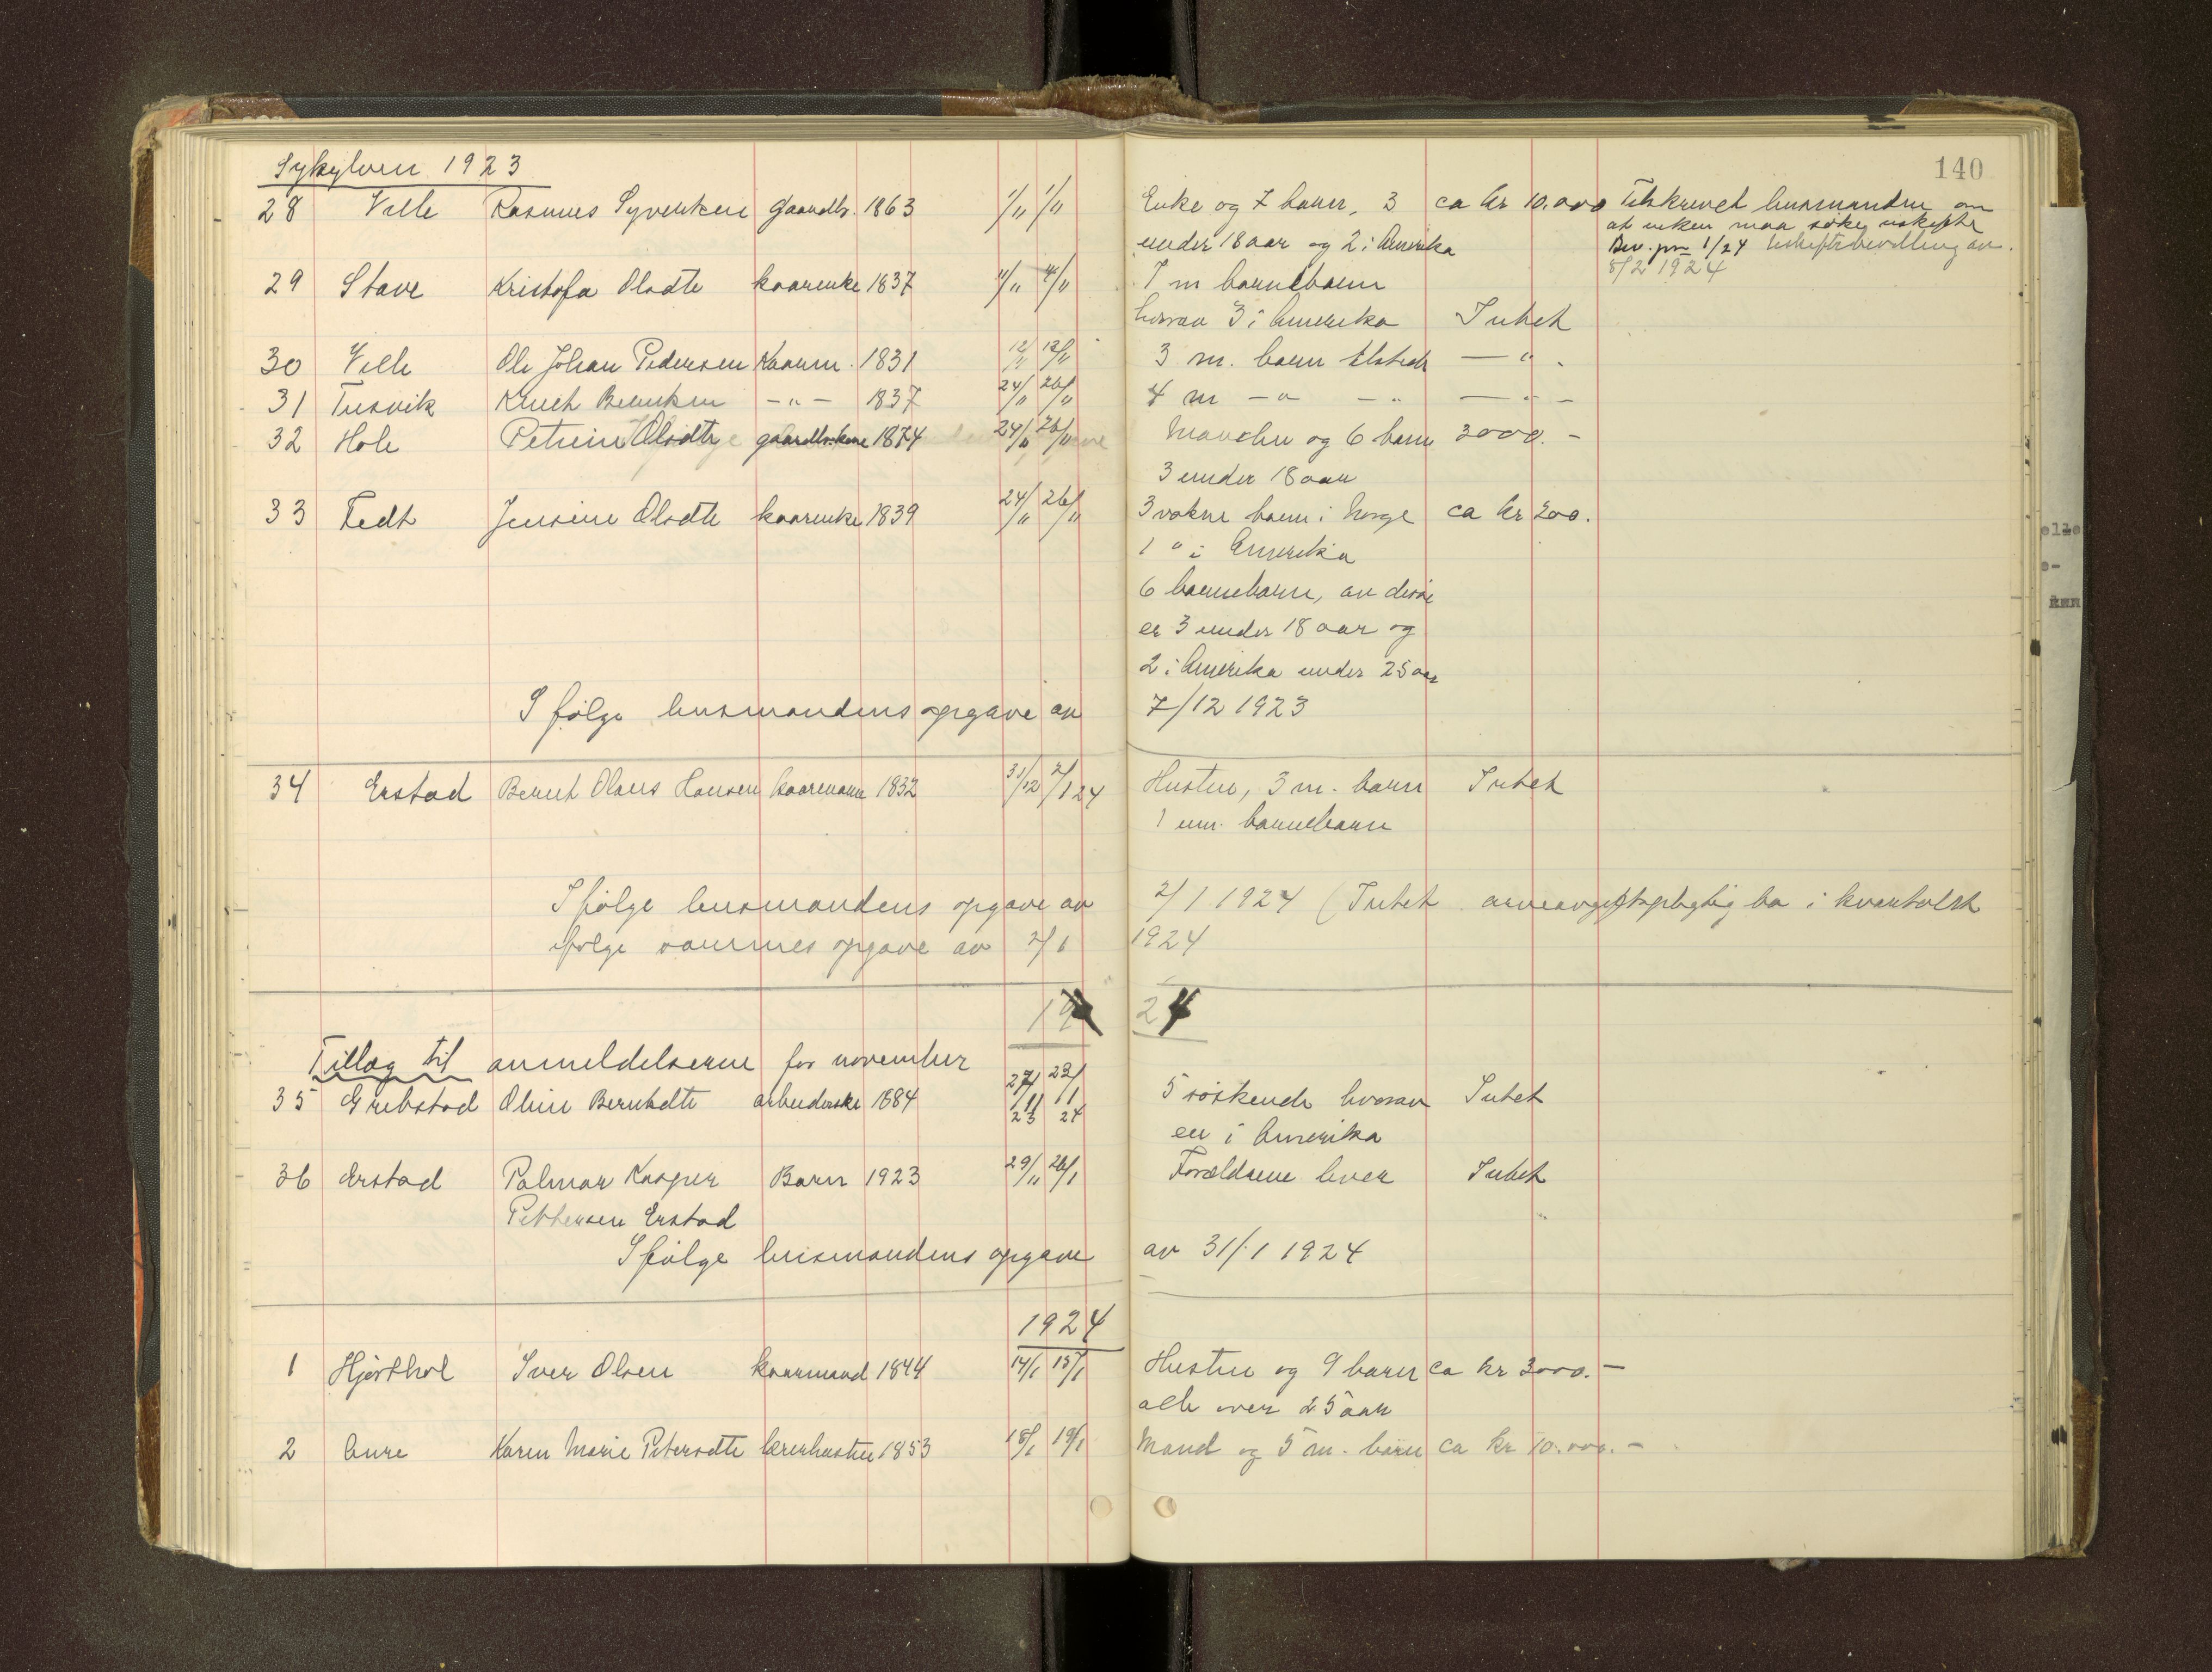 Sykylven 1923
140
28 Velle Rasmus Syvertsen gaardbr. 1863 1/11 1/11 Enke og 7 barn, 3 ca kr 10.000 Tilskrevet lensmanden om
at enken maa søke uskifte
under 18 aar og 2 i Amerika Bev. pr 1/24 Uskiftebevilling av
8/2 1924
29 Stave Kristofa Olsdtr kaarenke 1837 4/11 7 m barnebarn
hvorav 3 i Amerika Intet
30 Velle Ole Johan Pedersen Kaarm. 1831 12/11 12/11 3 m. barn tilstede — " -
31 Tusvik Knut Berntsen - " - 1837 24/11 26/11 4 m - " - - " - " -
32 Hole Petrine Olsdtr gaardbr.kone 1874 24/11 26/11 Manden og 6 barn 3000.-
3 under 18 aar
33 Fedt Jensine Olsdtr kaarenke 1839 24/11 26/11 3 voksne barn i Norge ca kr 200.
1 " i Amerika
6 barnebarn, av disse
er 3 under 18 aar og
2 i Amerika under 25 aar
I følge lensmandens opgave av 7/12 1923
34 Erstad Bernt Olaus Hansen kaarmann 1832 31/12 2/1 24 Hustru, 3 m. barn Intet
1 um. barnebarn
I følge lensmandens opgave av 2/1 1924 (Intet arveavgiftspligtig bo i kvartalet
ifølge sammes opgave av 2/1 1924
1924
Tillæg til anmeldelserne for november
35 Grebstad Oline Berntsdtr arbeiderske 1884 27/11 23 23/1 24 5 søskende hvorav Intet
en i Amerika
36 Erstad Palmar Kasper Barn 1923 29/11 26/1 Forældrene lever Intet
Pettersen Erstad
I følge lensmandens opgave av 31/1 1924
1924
1 Hjorthol Iver Olsen kaarmand 1844 14/1 15/1 Hustru og 9 barn ca kr 3000.-
alle over 25 aar
2 Aure Karen Marie Petersdtr lærerhustru 1853 18/1 19/1 Mand og 5 m. barn ca kr 10.000.-